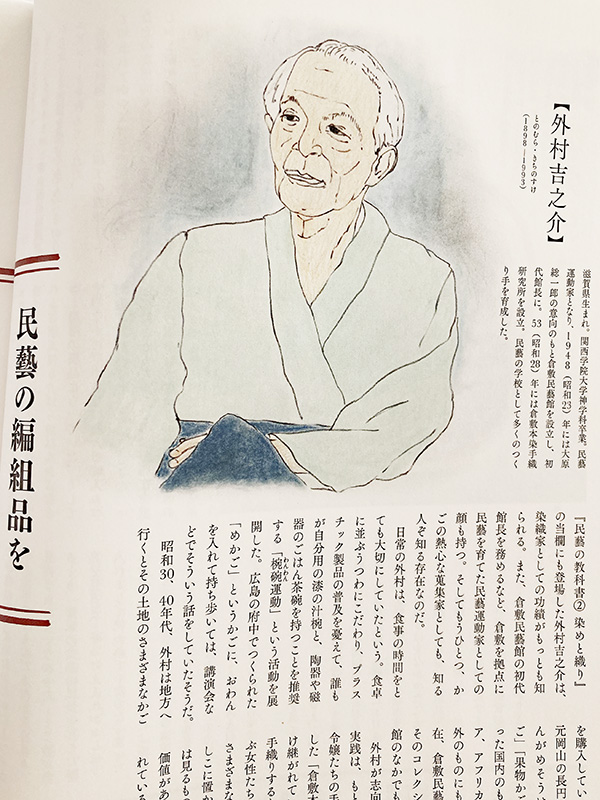 【外村吉之介】
とのむら・きちのすけ
(1898―1993)
滋賀県生まれ。関西学院大学神学科卒業。民藝
運動家となり、1948(昭和23)年には大原
総一郎の意向のもと倉敷民藝館を設立し、初
代館長に。53(昭和28)年には倉敷本染手織
研究所を設立。民藝の学校として多くのつく
り手を育成した。
民藝の編組品を
『民藝の教科書② 染めと織り』
の当欄にも登場した外村吉之介は、
染織家としての功績がもっとも知
られる。また、倉敷民藝館の初代
館長を務めるなど、倉敷を拠点に
民藝を育てた民藝運動家としての
顔も持つ。そしてもうひとつ、か
ごの熱心な蒐集家としても、知る
人ぞ知る存在なのだ。
日常の外村は、食事の時間をと
ても大切にしていたという。食卓
に並ぶうつわにこだわり、プラス
チック製品の普及を憂えて、誰も
が自分用の漆の汁椀と、陶器や磁
器のごはん茶碗を持つことを推奨
する「椀碗運動」という活動を展
わんわん
開した。広島の府中でつくられた
「めかご」というかごに、おわん
を入れて持ち歩いては、講演会な
どでそういう話をしていたそうだ。
昭和30、40年代、外村は地方へ
行くとその土地のさまざまなかご
を購入してい
元岡山の長円
んがめそう
ご」「果物か
った国内のも
ア、アフリカ
外のものにも
在、倉敷民藝
そのコレクシ
館のなかでも
外村が志向
実践は、もと
令嬢たちの手
した「倉敷本
け継がれて
手織りする
ぶ女性たち
さまざまな
しこに置か
は見るもの
価値があ
れている